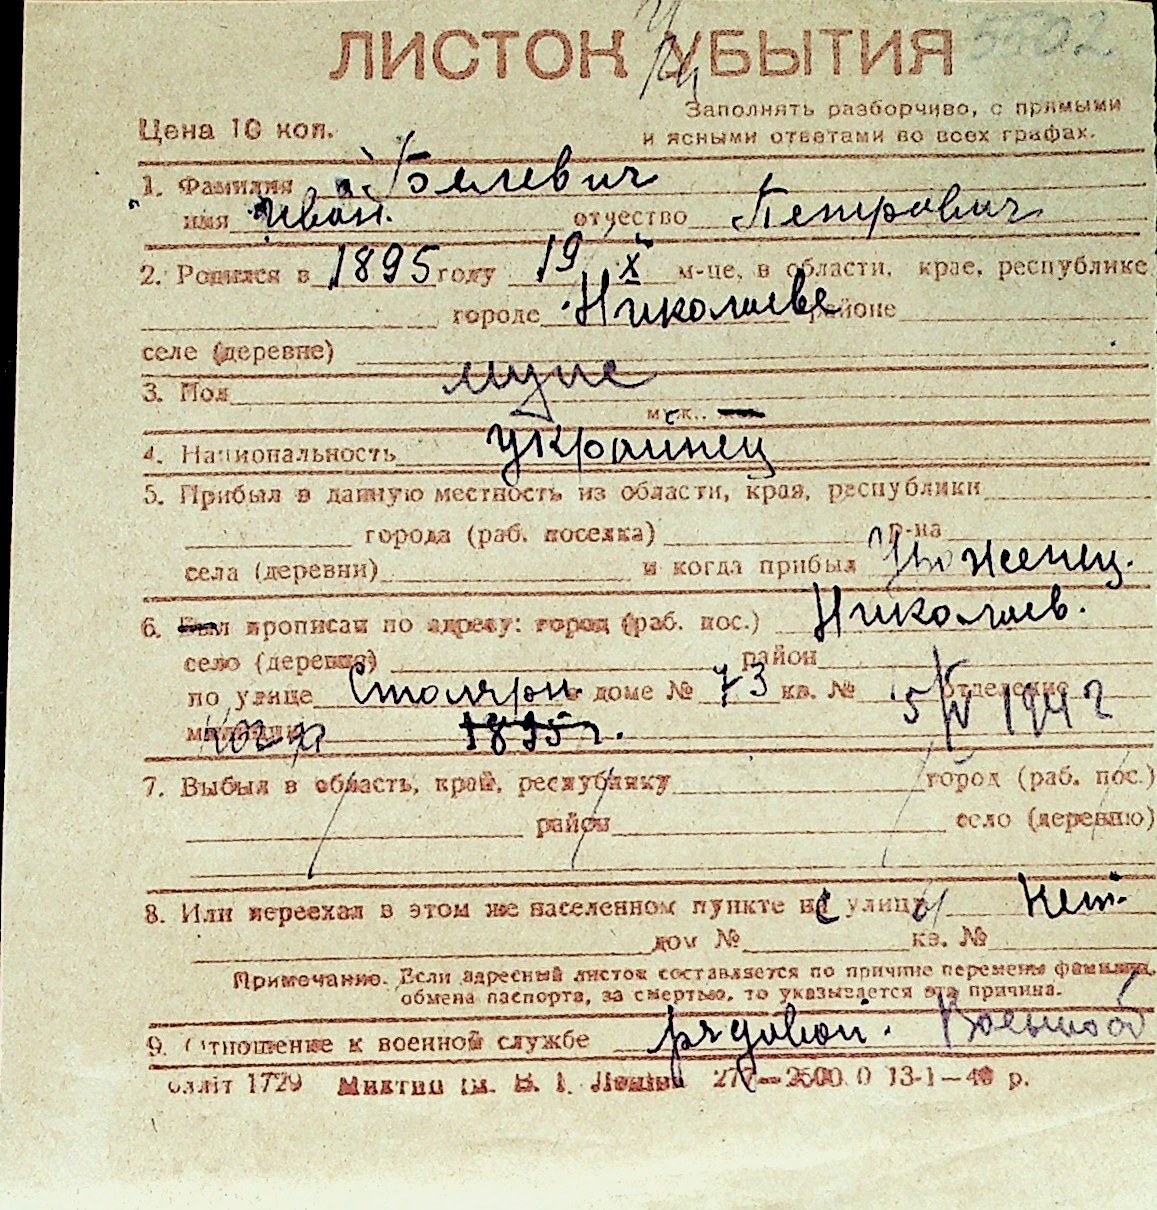 ЛИСТОК УБЫТИЯ 5502
Заполнять разборчиво, с прямыми
и ясными ответами во всех графах.
Цена 10 коп.
1. Фамилия
имя Иван отчество Петрович
2. Родился в 1895 году 19 X м-це, в области, крае, республике
городе Николаеве районе
селе (деревне)
3. Пол муже
муж.
4. Национальность украинец
5. Прибыл в данную местность из области, края, республики
города (раб. поселка) р-на
села (деревни) и когда прибыл уроженец.
6. прописан по адресу: город (раб. пос.) Николаев.
село (деревня) район
по улице Столярн. в доме № 73 кв. № отделение
милиции 1895 г. 5/IV 1942
7. Выбыл в область, край, республику город (раб. пос.)
район село (деревню)
8. Или переехал в этом же населенном пункте с улицы Нет.
дом № кв. №
Примечание. Если адресный листок составляется по причине перемены фамилии,
обмена паспорта, за смертью, то указывается эта причина.
9. Отношение к военной службе рядовой. Военнооб
1729 13-1-40 р.